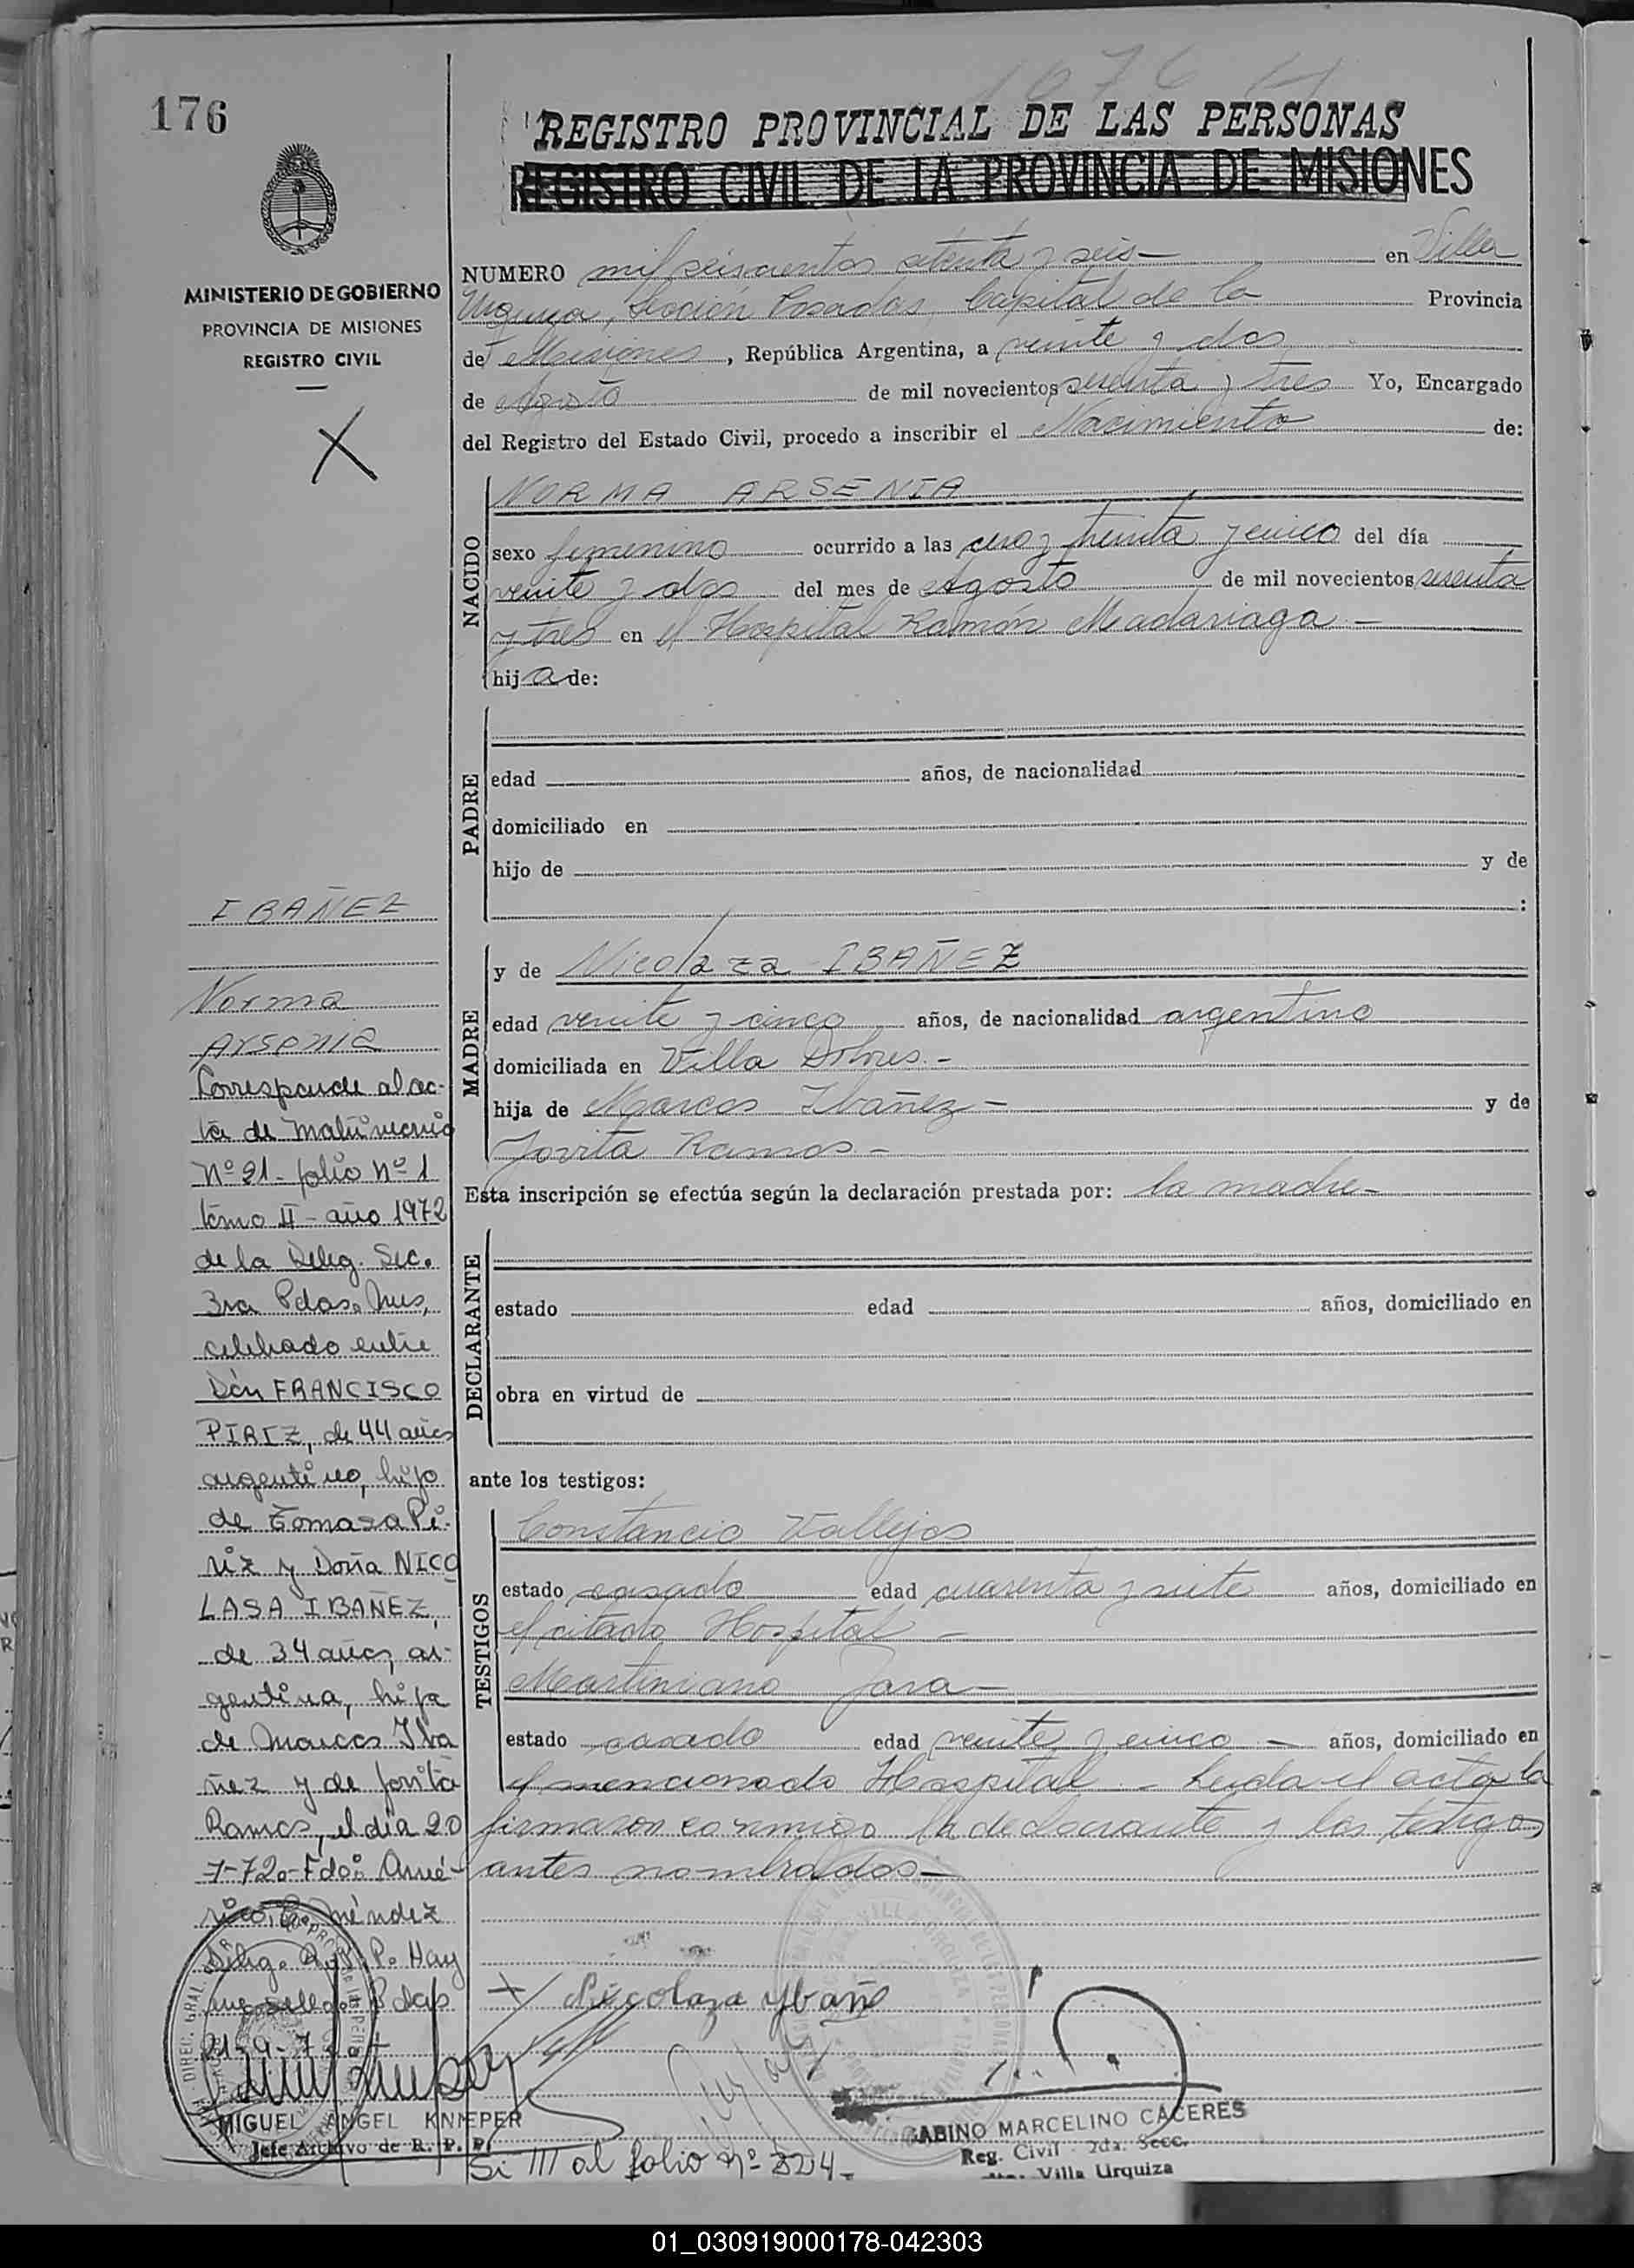 1676
176
REGISTRO PROVINCIAL DE LAS PERSONAS
REGISTRO CIVIL DE LA PROVINCIA DE MISIONES
MINISTERIO DE GOBIERNO
PROVINCIA DE MISIONES
REGISTRO CIVIL
NUMERO mil seiscientos setenta y seis - en Villa
Urquiza, Sección Posadas, Capital de la Provincia
de Misiones, República Argentina, a veinte y dos
de Agosto de mil novecientos sesenta y tres Yo, Encargado
del Registro del Estado Civil, procedo a inscribir el Nacimiento de:
NACIDO
NORMA ARSENIA
sexo femenino ocurrido a las cero y treinta y cinco del día
veinte y dos del mes de Agosto de mil novecientos sesenta
y tres en el Hospital Ramón Madariaga -
hija de:
PADRE
edad años, de nacionalidad
domiciliado en
hijo de y de
:
MADRE
y de Nicolaza IBAÑEZ
edad veinte y cinco años, de nacionalidad argentina
domiciliada en Villa Dolores. -
hija de Marcos Ibañez - y de
Jovita Ramos -
Esta inscripción se efectúa según la declaración prestada por: la madre -
DECLARANTE
estado edad años, domiciliado en
obra en virtud de
ante los testigos:
TESTIGOS
Constancio Vallejos
estado casado edad cuarenta y siete años, domiciliado en
el citado Hospital -
Martiniano Jara -
estado casado edad veinte y cinco - años, domiciliado en
el mencionado Hospital - Leida el acta la
firmaron conmigo la declarante y los testigos
antes nombrados -
Nicolaza Ybañe
GABINO MARCELINO CACERES
Reg. Civil 2da. Secc.
Villa Urquiza
IBAÑEZ
Norma
Arsenia
Corresponde al ac-
ta de Matrimonio
Nº 21 - folio nº 1
tomo II - año 1972
de la Deleg. Sec.
3ra Pdas. Mnes,
celebrado entre
Don FRANCISCO
PIRIZ, de 44 años
argentino, hijo
de Tomasa Pi-
riz y Doña NICO
LASA IBAÑEZ,
de 34 años, ar-
gentina, hija
de Marcos Iba
ñez y de Jovita
Ramos, el día 20
7-72o-Fdo: Amé-
rico méndez
Deleg. R. P. P. Hay
un sello Pdas
MIGUEL ANGEL KNIEPER
Jefe Archivo de R. P. P.
Si III al folio nº 224 -
01_030919000178-042303